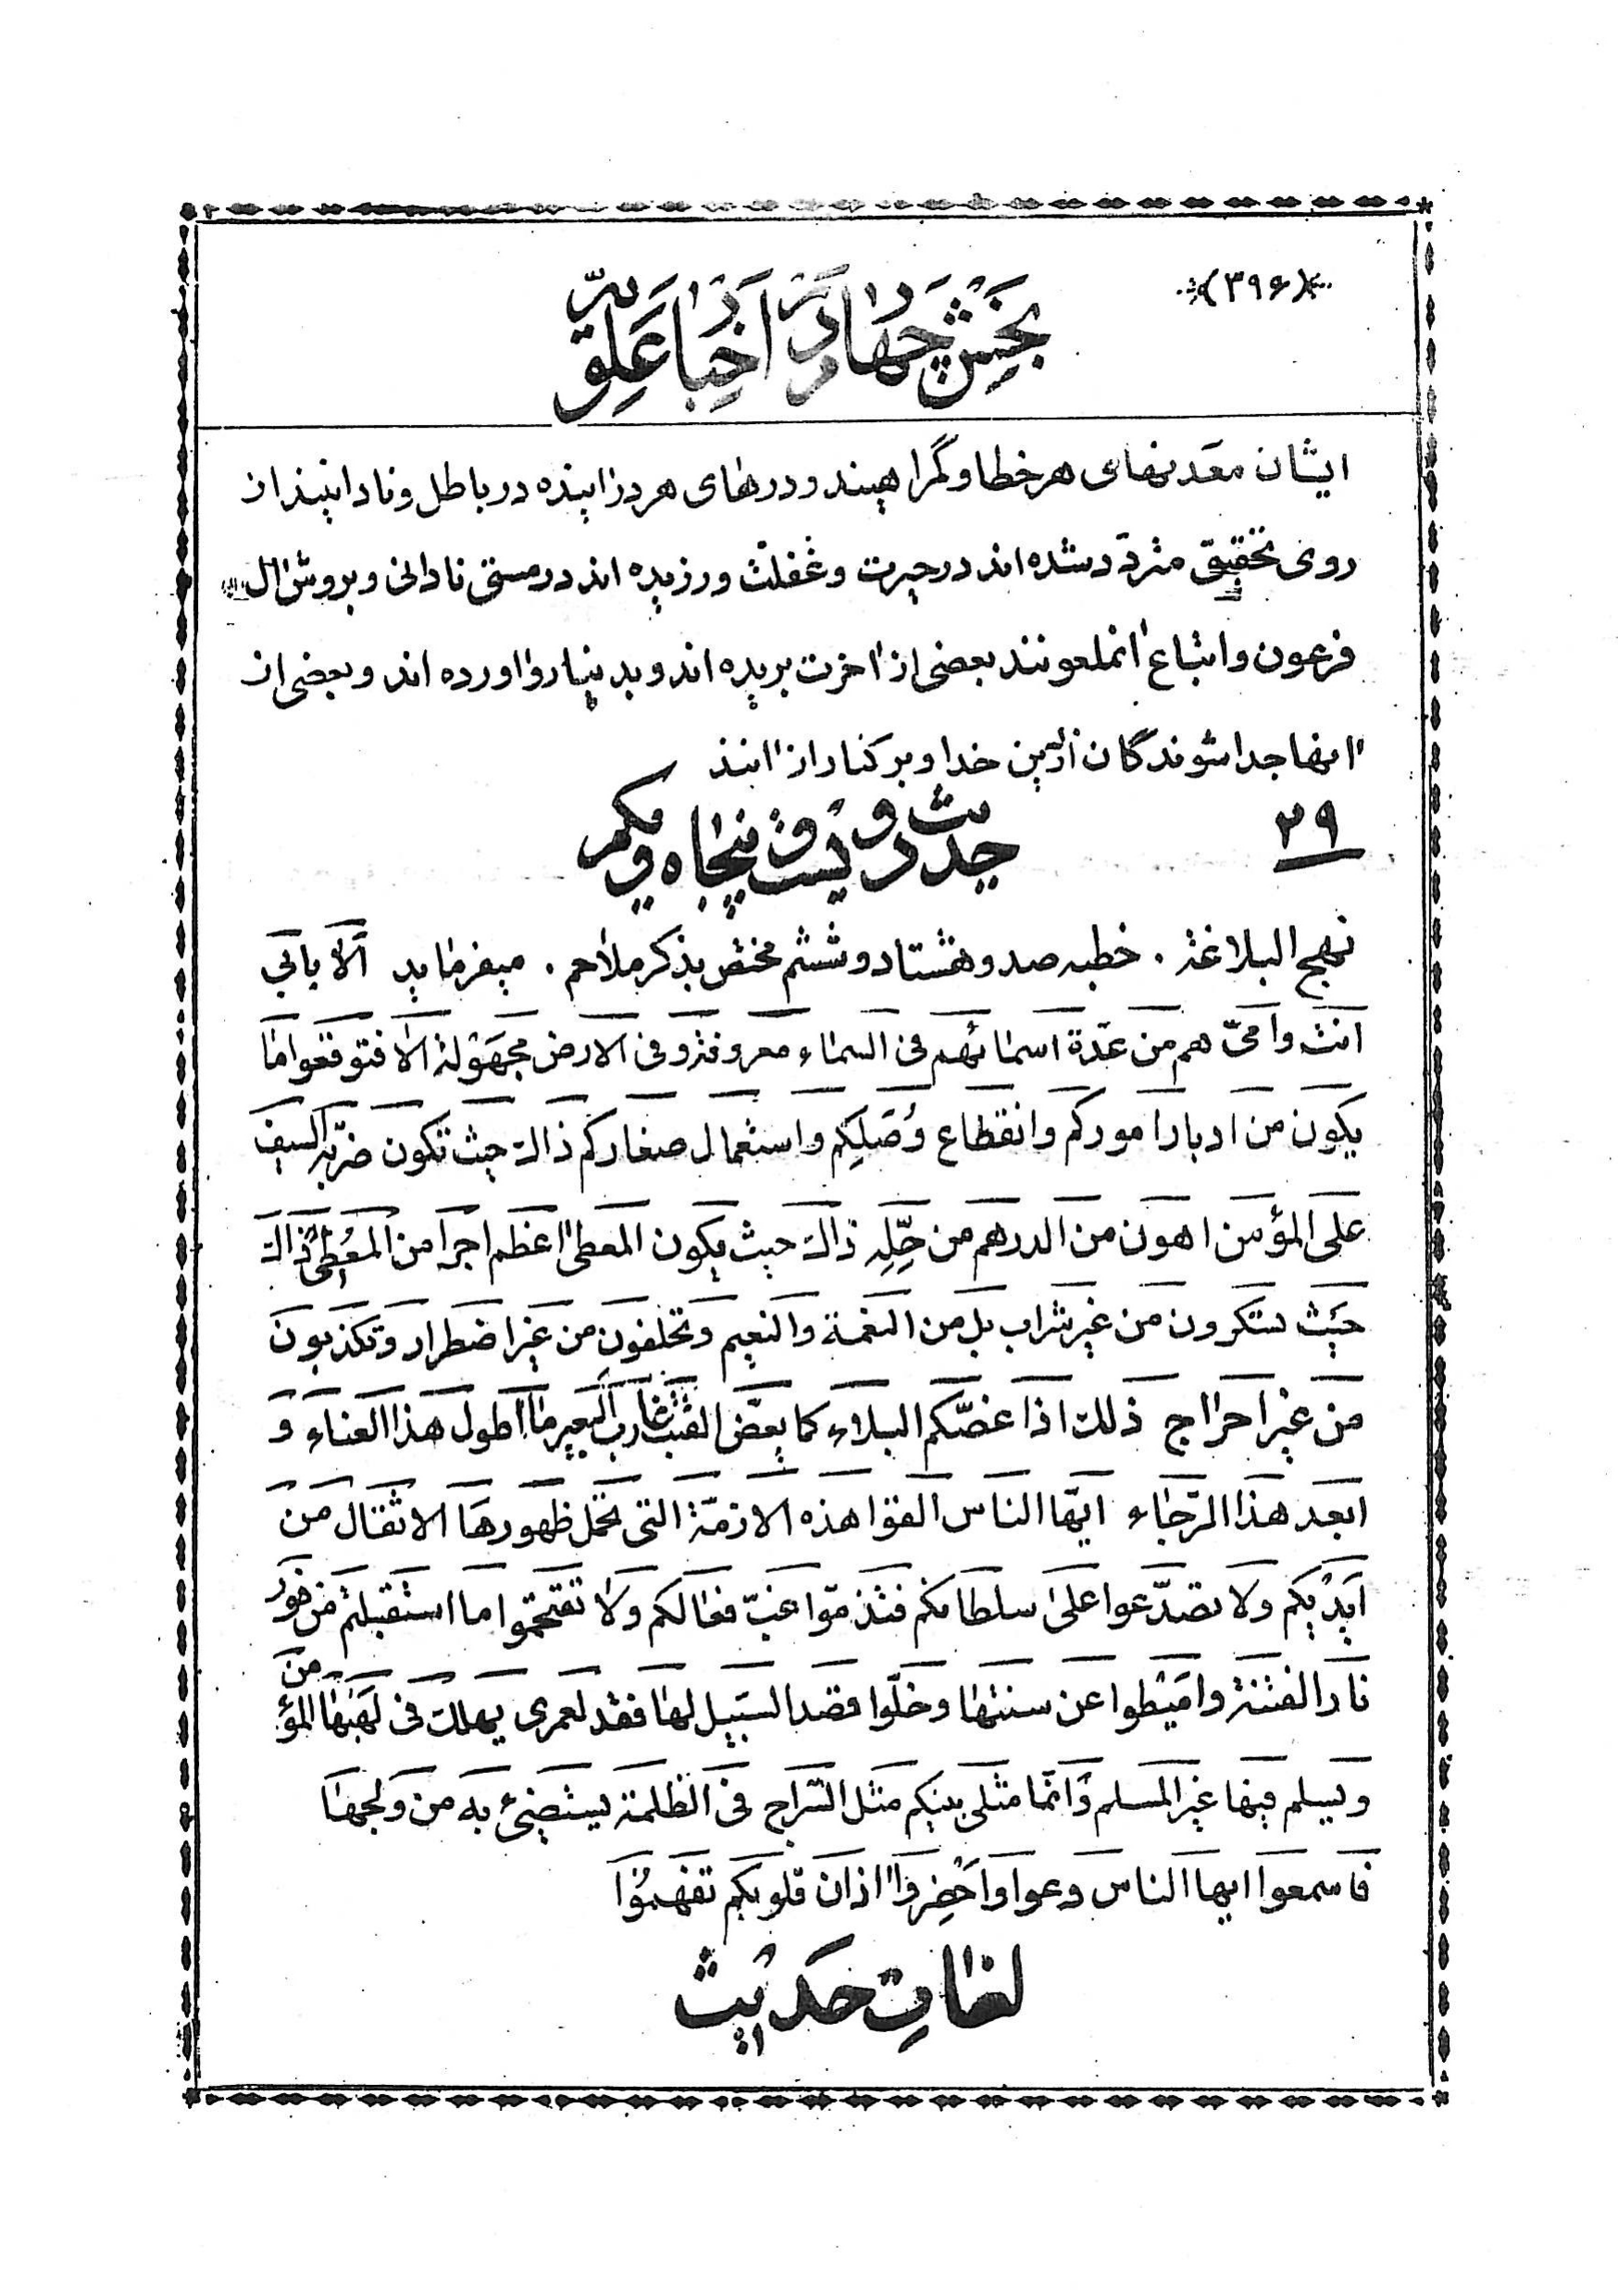 (۳۹۶)
بخش چهارم در اخبار علویّه
ایشان معدنهای هر خطا و گمراهیند و درهای هر درآینده در باطل و نادانیند از
روی تحقیق متردّد شده اند در حیرت و غفلت ورزیده اند در مستی نادانی و بروش ال
فرعون و اتباع آنملعونند بعضی از آخرت بریده اند و بدنیا رو آورده اند و بعضی از
آنها جدا شوندگان از دین خدا و بر کنار از آنند
۲۹
حدیث دویست و پنجاه و یکم
نهج البلاغة . خطبه صد و هشتاد و ششم مختص بذکر ملاحم . میفرماید اَلا بابی
انت و اُمّی هم من عدّة اسمائهم فی السماء معروفة و فی الارض مجهولة الا فتوقعوا ما
یکون من ادبار امورکم و انقطاع وُصَلِکم و استعمال صغارکم ذالک حیث تکون ضربة السیف
علی المؤمن اهون من الدرهم من حِلِّه ذالک حیث یکون المعطی اعظم اجرا من المُعْطی ذالک
حَیث تسکرون من غیر شراب بل من النعمة والنعیم و تحلفون من غیر اضطرار و تکذبون
من غیر احراج ذلک اذا عضّکم البلاء کما یعضّ القتب غارب البعیر ما اطول هذا العناء و
ابعد هذا الرّجاء ایّها الناس القوا هذه الازمّة التی تحمل ظهورها الاثقال من
ایدیکم ولا تصدّعوا علی سلطانکم فتذمّوا غبّ فعالکم ولا تقتحموا ما استقبلتم من فور
نار الفتنة و امیطوا عن سننها و خلّوا قصد السبیل لها فقد لعمری یهلک فی لهبها المؤمن
و یسلم فیها غیر المسلم و انّما مثلی بینکم مثل السّراج فی الظلمة یستضیء به من ولجها
فاسمعوا ایها الناس وعوا و اَحْضِروا اذان قلوبکم تفهموا
لغاتِ حدیث